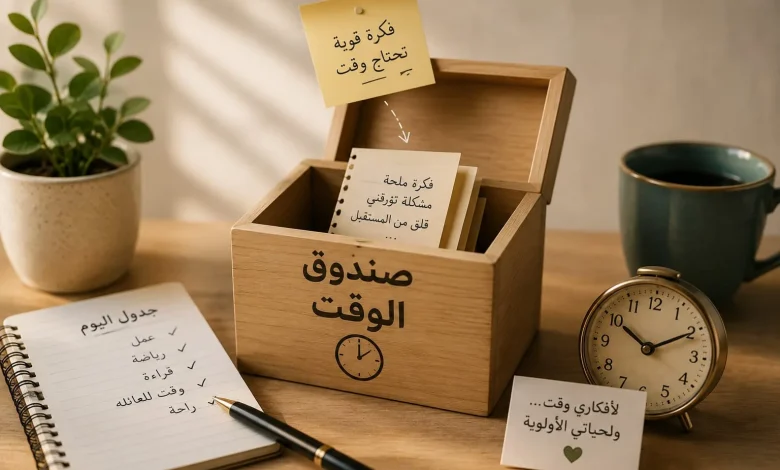 فكرة قوية
تحتاج وقت
فكرة ملحة
مشكلة تؤرقني
قلق من المستقبل
...
صندوق
الوقت
جدول اليوم
عمل
رياضة
قراءة
وقت للعائله
راحة
12
1
2
3
4
5
6
7
8
9
10
11
لأفكاري وقت...
ولحياتي الأولوية